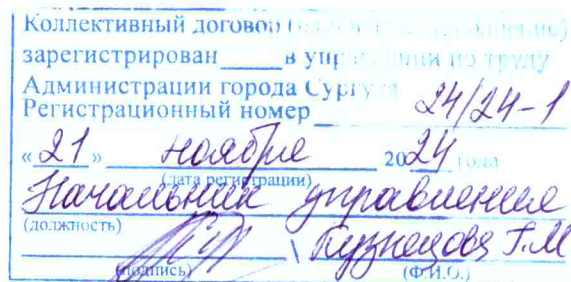 Коллективный договор
зарегистрирован_____в управлении по труду
Администрации города Сургута
Регистрационный номер 24/24-1
«21» ноября 2024 года
(дата регистрации)
Начальник управления
(должность)
\ Кузнецова Г.М
(подпись) (Ф.И.О.)